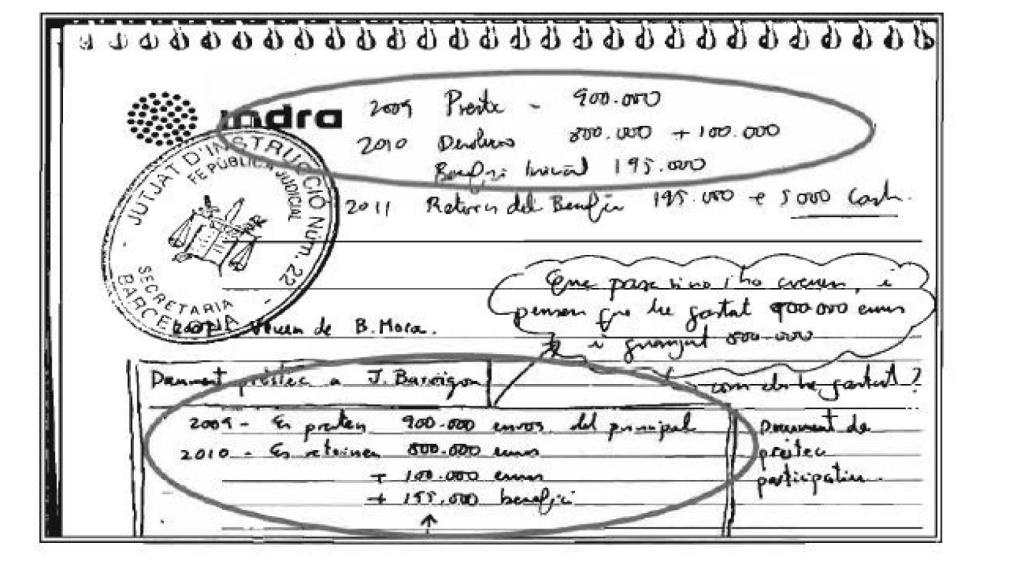 indra
2009 Presta - 900.000
2010 800.000 + 100.000
Benefici Inicial 195.000
2011 Retorn del Benefici 195.000 + 5000 Cash.
JUTJAT D'INSTRUCCIÓ NÚM. 22
FE PÚBLICA JUDICIAL
SECRETARIA
BARCELONA
Que passa si no s'ho creuen, i
pensen que he gastat 900.000 euros
i guanyat 800.000
com els he gastat?
de B. Mora.
Document préstec a J.
2009 - Es presten 900.000 euros del principal
2010 - Es retornen 800.000 euros
+ 100.000 euros
+ 155.000 benefici
Document de
préstec
participatiu